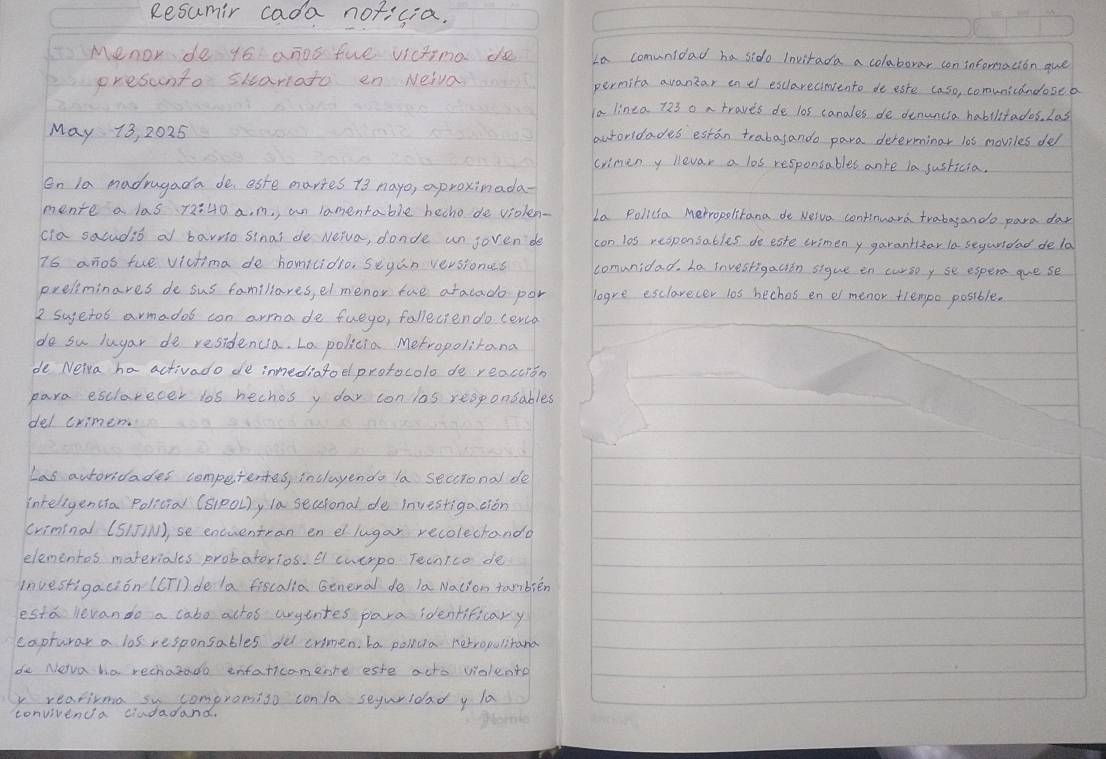 Resumir cada noticia.
Menor de 16 años fue victima de
presunto sicariato en Neiva
May 13, 2025
En la madrugada de este martes 13 mayo, aproximada-
mente a las 12:40 a.m., un lamentable hecho de violen-
cia sacudió al barrio Sinai de Neiva, donde un joven de
16 años fue victima de homicidio. según versiones
preliminares de sus familiares, el menor fue atacado por
2 sujetos armados con arma de fuego, falleciendo cerca
de su lugar de residencia. La policia Metropolitana
de Neiva ha activado de inmediato el protocolo de reacción
para esclarecer los hechos y dar con los responsables
del crimen.
Las autoridades competentes, incluyendo la seccional de
inteligencia Policial (SIPOL) y la seccional de Investigación
criminal (SIJIN), se encuentran en el lugar recolectando
elementos materiales probatorios. El cuerpo Tecnico de
investigación (CTI) de la fiscalia General de la Nación también
está llevando a cabo actos urgentes para identificar y
capturar a los responsables del crimen. La policia metropolitana
de Neiva ha rechazado enfaticamente este acto violento
y reafirma su compromiso con la seguridad y la
convivencia ciudadana.
La comunidad ha sido Invitada a colaborar con información que
permita avanzar en el esclarecimiento de este caso, comunicándose a
la linea 123 o a través de los canales de denuncia habilitados. Las
autoridades están trabajando para determinar los moviles del
crimen y llevar a los responsables ante la justicia.
La Policia Metropolitana de Neiva continuará trabajando para dar
con los responsables de este crimen y garantizar la seguridad de la
comunidad. La investigación sigue en curso y se espera que se
logre esclarecer los hechos en el menor tiempo posible.
Norma